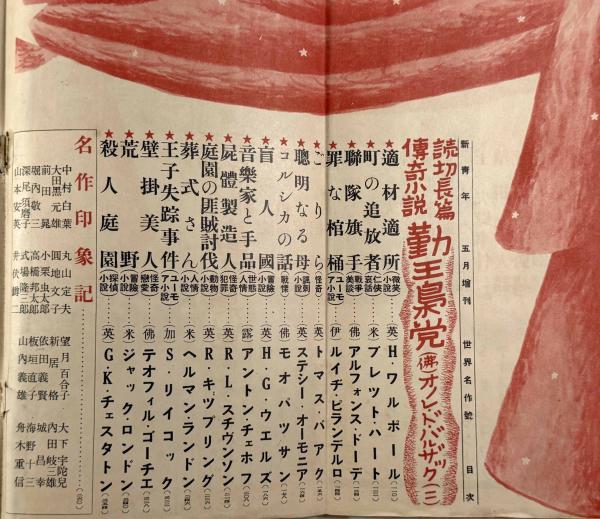 新青年 五月増刊 世界名作號 目次
読切長篇
傳奇小説
勤王梟党
(佛)オノレ・ド・バルザック
★適材適所 微笑小説 (英)H・ワルポール
★町の追放者 仁侠哀話 (米)ブレット・ハート
★聯隊旗手 戰爭美談 (佛)アルフォンス・ドーデ
★罪な棺桶 ユーモア小説 (伊)ルイヂ・ピランデルロ
★ごりら 怪奇小説 (英)トマス・バアク
★聰明なる母 諷刺小説 (英)ステシー・オーモニア
★コルシカの話 戰慄 (佛)モオパッサン
★盲人國 冒險小説 (英)H・G・ウエルズ
★音樂家と手品 世態人情 (露)アントン・チェホフ
★屍體製造人 怪奇犯罪 (英)R・L・スチヴンソン
★庭園の匪賊討伐 動物小説 (英)R・キプリング
★葬式さん 人情小説 (米)ヘルマン・ランドン
★王子失踪事件 ユーモア小説 (加)S・リイコック
★壁掛美人 怪奇戀愛 (佛)テオフィル・ゴーチエ
★荒野 冒險小説 (米)ジャック・ロンドン
★殺人庭園 探偵小説 (英)G・K・チェスタトン
名作印象記
中村白葉
大田黒元雄
前田晃
堀内敬三
深尾須磨子
山本安英
丸山定夫
圓地文子
小栗虫太郎
高橋邦太郎
式場隆三郎
井伏鱒二
望月百合子
新居格
依田義賢
板垣直子
山内義雄
大下宇陀兒
内田岐三雄
城昌幸
海野十三
舟木重信